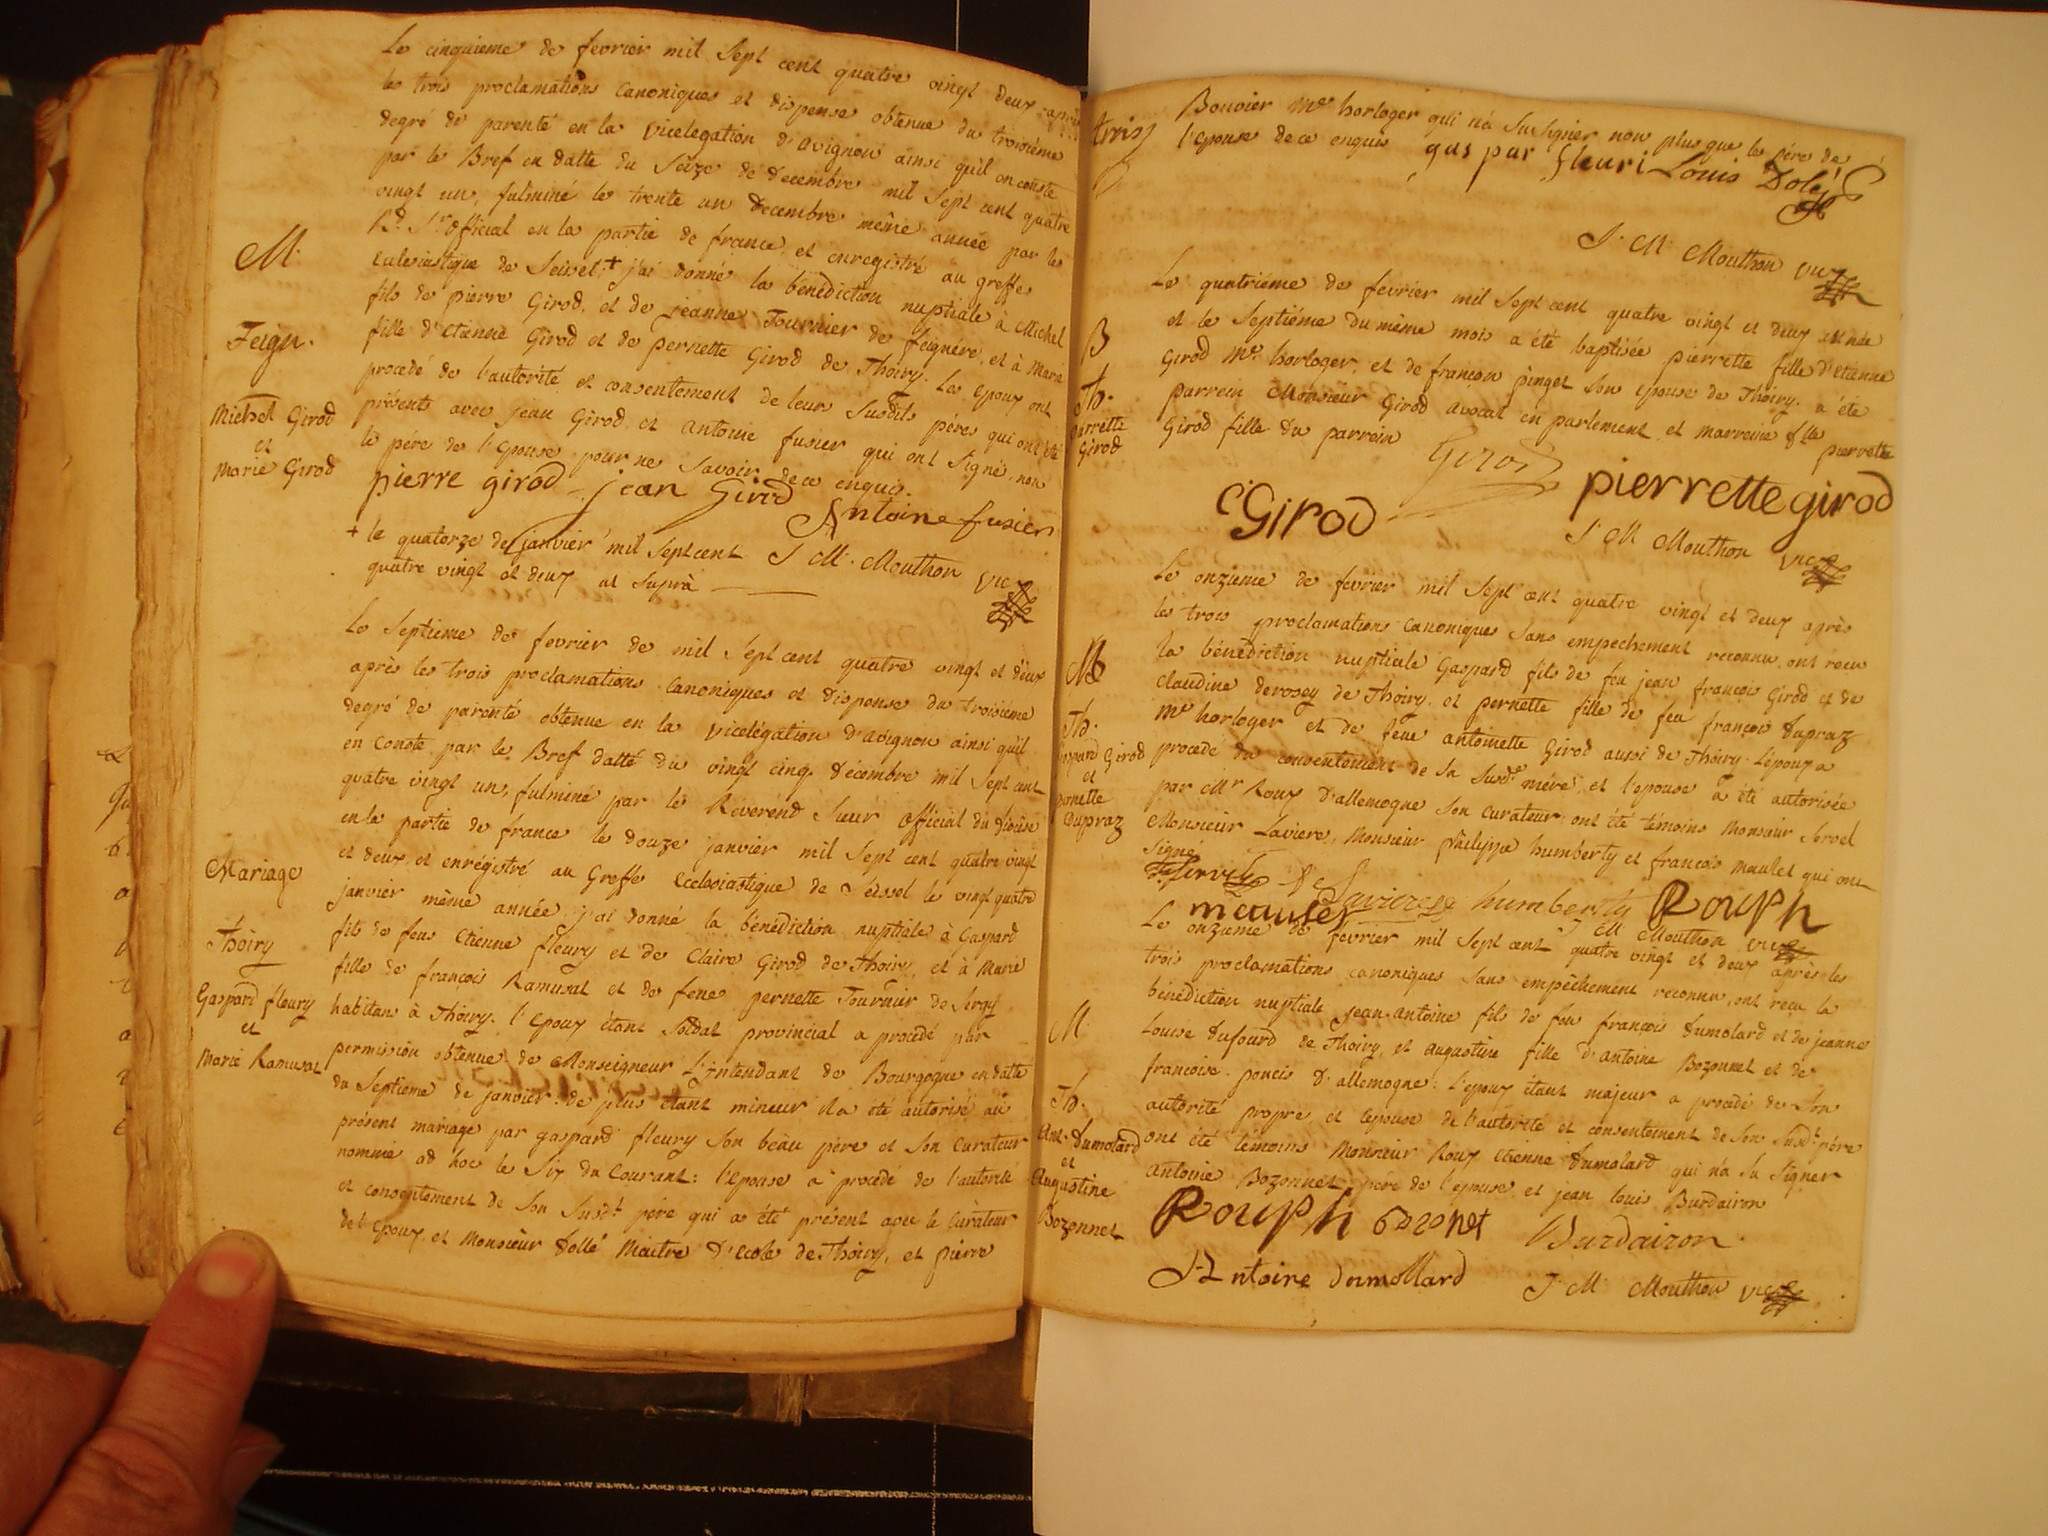 Le cinquieme de fevrier mil Sept cent quatre vingt deux après
les trois proclamations Canoniques et dispense obtenue du troisiéme
degré de parenté en la vicelegation d'avignon ainsi qu'il en conste
par le Bref en datte du Seize de decembre mil Sept cent quatre
vingt un, fulminé le trente un decembre même année par le
Rd. Sr. official en la partie de france, et enregistré au greffe
M.
eclesiastique de Seissel:+ j'ai donné la bénédiction nuptiale à Michel
fils de pierre Girod, et de jeanne Tournier de feignére, et à Marie
fille d'Etienne Girod et de pernette Girod de Thoiry. Les Epoux ont
Feign.
procedé de l'autorité et consentement de leurs Susdits péres qui ont été
présents avec jean Girod, et antoine fusier qui ont Signé, non
le pére de l'Epouse pour ne Savoir de ce enquis.
Michel Girod
et
Marie Girod
pierre girod jean Girod
Antoine fusier
+ le quatorze de janvier mil Sept cent
quatre vingt et deux ut Suprà
J. M. Mouthon vic
Le Septieme de fevrier de mil Sept cent quatre vingt et deux
après les trois proclamations Canoniques et dispense du troisieme
degré de parenté obtenue en la vicelégation d'avignon ainsi qu'il
en Conste par le Bref datté du vingt cinq Décembre mil Sept cent
quatre vingt un, fulminé par le Révérend Sieur official du diocèse
en la partie de france le douze janvier mil Sept cent quatre vingt
et deux et enregistré au Greffe Ecclesiastique de Seissel le vingt quatre
Mariage
janvier même année j'ai donné la bénédiction nuptiale à Gaspard
fils de feus Etienne fleury et de Claire Girod de Thoiry, et à Marie
Thoiry
fille de françois Ramusat et de feue pernette Tournier de Sergy
Gaspard fleury
et
Marie Ramusat
habitans à Thoiry. l'Epoux étant Soldat provincial a procédé par
permission obtenue de Monseigneur L'Intendant de Bourgogne en datte
du Septieme de janvier: de plus étant mineur il a été autorisé au
présent mariage par gaspard fleury Son beau pére et Son Curateur
nommé ad hoc le Six du Courant: l'Epouse a procédé de l'autorité
et consentement de Son Susdt. pére qui a été présent avec le Curateur
de l'Epoux, et Monsieur Dollé Maitre d'Ecole de Thoiry, et pierre
Bouvier Me. horloger qui n'a Su Signer non plus que le pére de
l'epouse de ce enquis
gaspar fleuri Louis Dolé
J. M. Mouthon vic
Le quatriéme de fevrier mil Sept cent quatre vingt et deux est née
et le Septiéme du même mois a été baptisée pierrette fille d'Etienne
B
Girod Me. horloger, et de françon pinget Son epouse de Thoiry. a été
Th.
parrein Monsieur Girod avocat en parlement et marreine Dlle pierrette
pierrette
Girod
Girod fille du parrein
Girod
pierrette girod
Girod
J M Mouthon vic
Le onzieme de fevrier mil Sept cent quatre vingt et deux après
les trois proclamations canoniques Sans empechement reconnu, ont reçu
M
la bénédiction nuptiale Gaspard fils de feu jean françois Girod et de
claudine derosey de Thoiry, et pernette fille de feu françois Dupraz
Th.
Me horloger et de feue antoinette Girod aussi de Thoiry. L'époux a
Gaspard Girod
et
pernette
Dupraz
procedé du consentement de Sa Susde. mére, et l'epouse a été autorisée
par Mr Roux d'allemogne Son Curateur: ont été témoins Monsieur
Monsieur Laviere, Monsieur philippe humberty et françois maulet qui ont
Signé
humberty Rouph
J M Mouthon vic
Le onzieme de fevrier mil Sept cent quatre vingt et deux après les
trois proclamations canoniques Sans empêchement reconnu, ont reçu la
bénédiction nuptiale jean-antoine fils de feu françois dumolard et de jeanne
M.
Louise dufourd de Thoiry, et augustine fille d'antoine Bozonnet et de
francoise poncis d'allemogne: l'epoux étant majeur a procédé de Son
Th.
autorité propre et l'epouse de l'autorité et consentement de Son Susdt. pére
Ant. Dumolard
et
Augustine
Bozonnet
ont été témoins Monsieur Roux Etienne dumolard qui n'a Su Signer
antoine Bozonnet pére de l'epouse, et jean louis Burdairon
Rouph bozonet
Burdairon.
Antoine dumollard
J M Mouthon vic